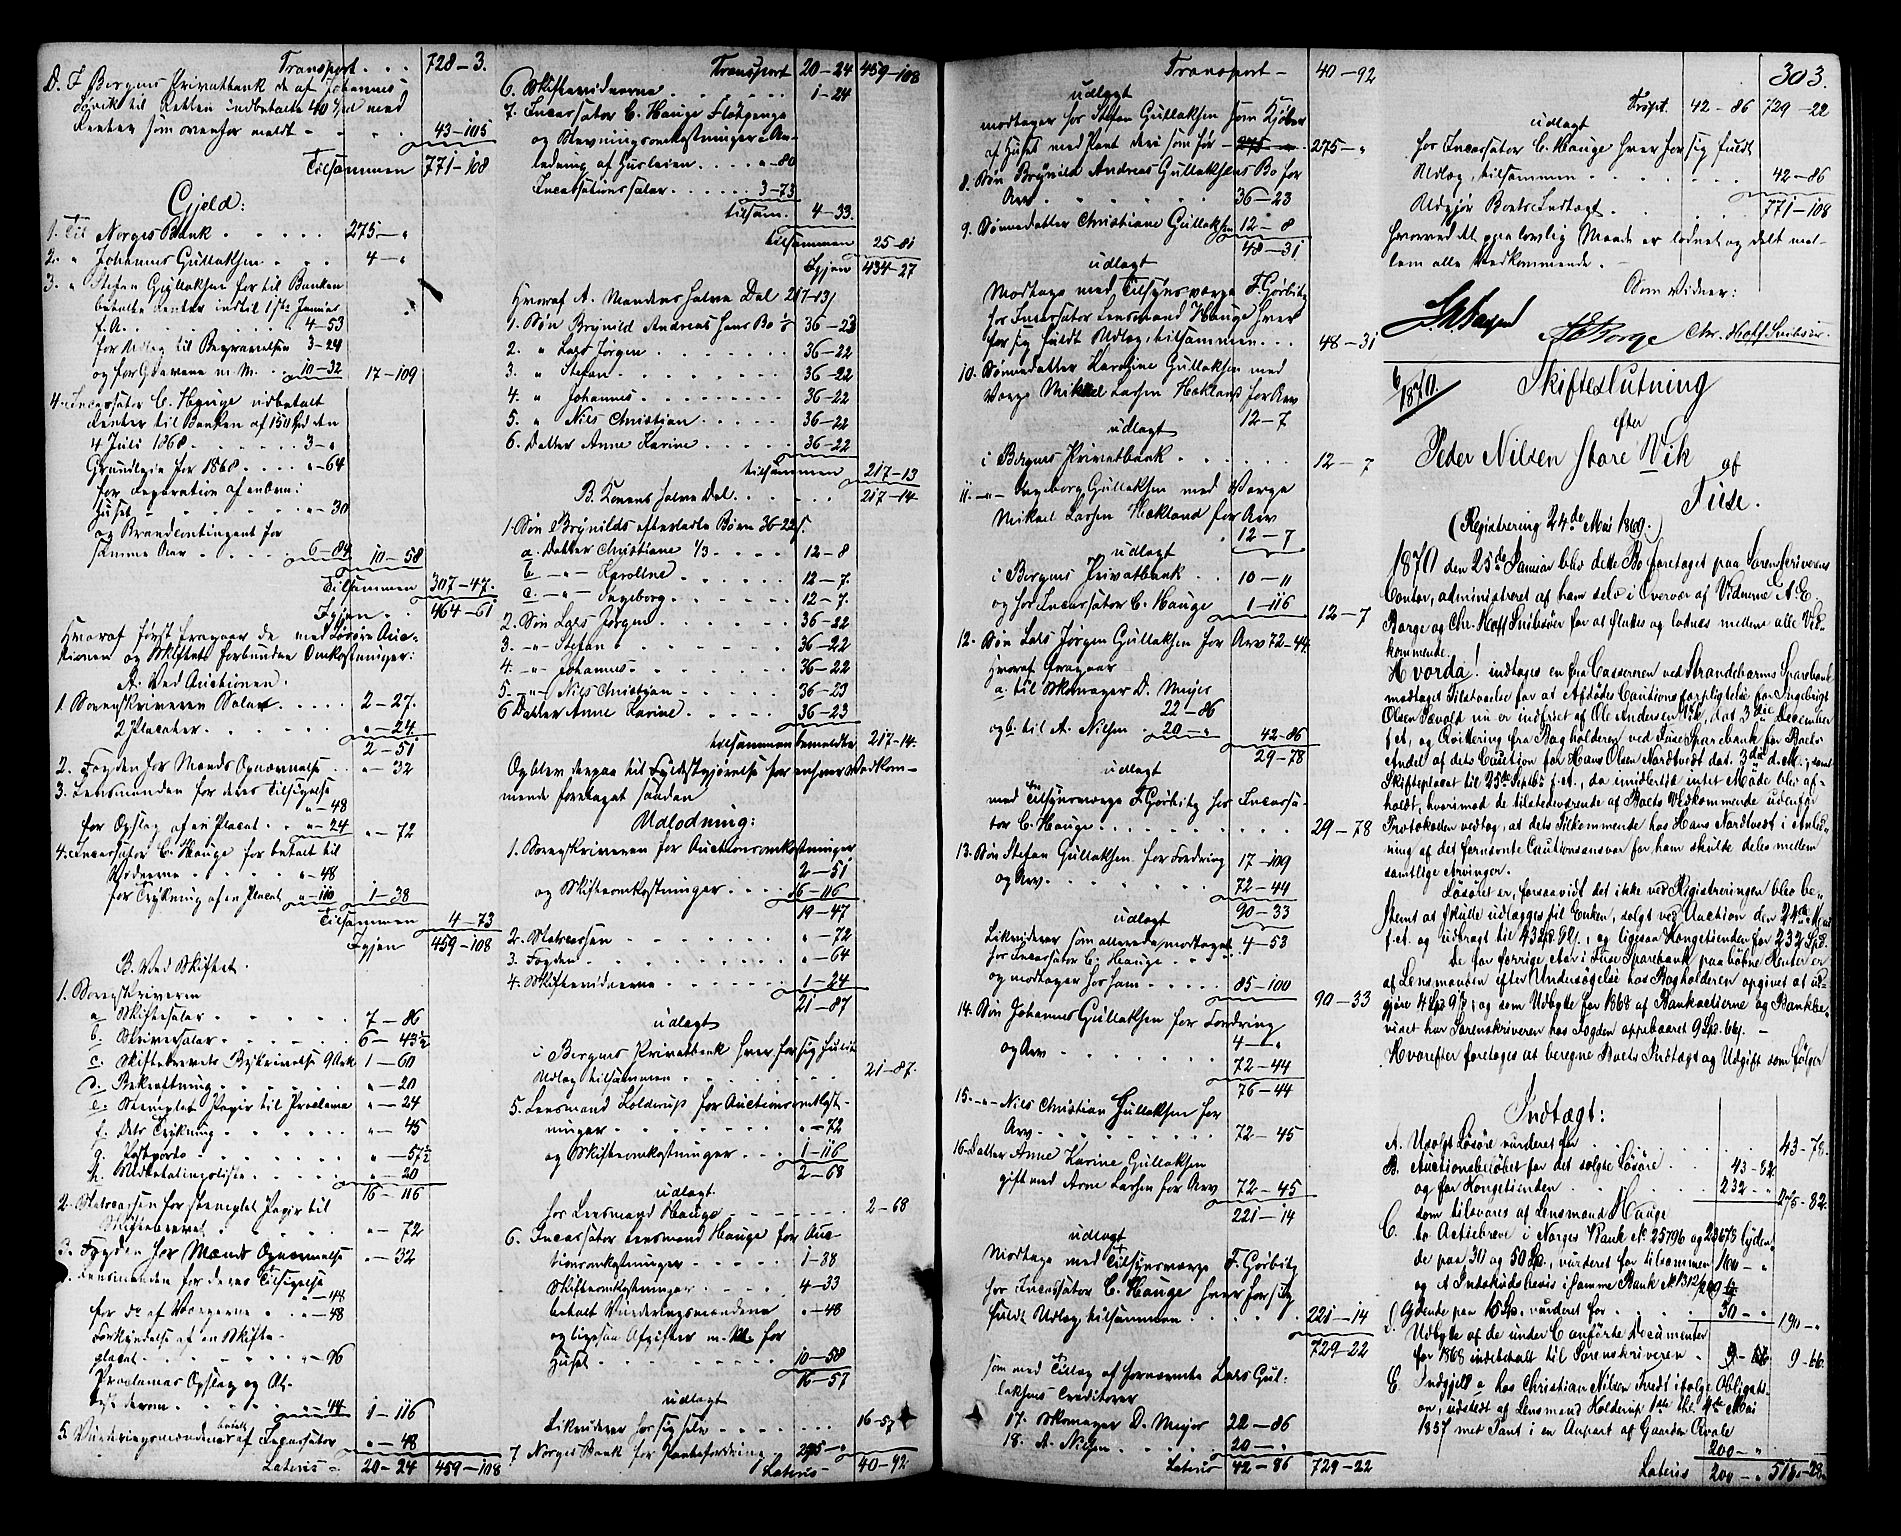 Transport . . . 728-3.
D. I Bergens Privatbank de af Johannes
til Retten indbetalte 40 Spd med
Renter som ovenfor meldt - 43-105
Tilsammen 771-108
Gjeld:
1. Til Norges Bank . . . . . 275-"
2. " Johannes Gullaksen . . . 4-"
3. " Stefan Gullaksen for til Banken
betalte Renter indtil 1ste Januar
f. A. . . . . 4-53
for Udlæg til Begravelsen 3-24
og for m. M. . . 10-32 17-109
4. Incassator C. Hauge udbetalt
Renter til Banken af 150 Spd den
4 Juli 1868 . . . . 3-"
Grundleie for 1868 . . . "-64
for Reparation af en Ovn i
Huset - . . . . "-30
og Brandcontingent for
samme Aar . . . . 6-84 10-58
Tilsammen 307-47.
Igjen . 464-61
Hvoraf først fragaar de med Løsøre Auc-
tionen og Skiftets forbundne Omkostninger:
A. Ved Auctionen.
1. Sorenskriveren Salær . . . . 2-27.
2 Placater . . . . "-24
2-51
2. Fogden for Mænds Opnævnelse . . "-32
3. Lensmanden for deres Tilsigelse
"-48
for Opslag af en Placat . . "-24 "-72
4. Incassator C. Hauge for betalt til
Vidnerne . . . . . "-48
for Trykning af en Placat "-110 1-38
Tilsammen 4-73
Igjen 459-108
B. Ved Skiftet.
1. Sorenskriveren
a. Skiftesalær . . . . . 7-86
b. Skriversalær . . . . 6-43½
c. Skiftebrevets Beskrivelse 9 Ark 1-60
d. Bekræftning . . . . . "-20
e. Stemplet Papir til Proclama "-24
f. Dets Trykning . . . . . "-45
g. Postporto . . . . . "-57½
h. . . . . "-20
16-116
2. Statcassen for stemplet Papir til
Skiftebrevet . . . . "-72
3. Fogden for Mænds Opnævnelse "-32
4. Lensmanden for deres Tilsigelse
"-48
for do af Værgerne . . "-48
Forkyndelse af en Skifte-
placat . . . . . . "-96
Proclamas Opslag og Af-
. . . . "-44 1-116
5. Vurderingsmændenes af Incassator
betalt "-48
Lateris - 20-24 459-108

Transport 20-24 459-108
6. Skiftevidnerne . . . . . 1-24
7. Incassator C. Hauge Flødpenge
og Stevningsomkostninger i An-
ledning af Husleien . . . . "-80
Incassationssalær . . . . . 3-73
tilsam. 4-33.
tilsammen 25-81
Igjen 434-27
Hvoraf A. Mandens halve Del 217-13½
1. Søn Brynild Andreas hans Bo 36-23
2. " Lars Jørgen . . . . . . 36-22
3. " Stefan . . . . . . . . 36-22
4. " Johannes . . . . . . . 36-22
5. " Nils Christian . . . . . 36-22
6. Datter Anne Karine . . . . . 36-22
tilsammen 217-13
B. Konens halve Del . . . . . 217-14.
1. Søn Brynilds efterladte Børn 36-22
a. Datter Christiane 1/3 . . . 12-8
b. -"- Karoline . . . . . 12-7.
c. -"- Ingeborg . . . . . 12-7.
2. Søn Lars Jørgen . . . . . 36-22
3. -"- Stefan . . . . . . 36-22
4. -"- Johannes . . . . . . 36-22
5. -"- Nils Christian . . . . . 36-23
6 Datter Anne Karine . . . . . 36-23
tilsammen bemeldte 217-14.
Og blev derpaa til Fyldestgjørelse for enhver Vedkom-
mende foretaget saadan
Udlodning:
1. Sorenskriveren for Auctionsomkostninger
2-51
og Skifteomkostninger . . . . 16-116
19-47
2. Statcassen . . . . . . . "-72
3. Fogden . . . . . . . "-64
4. Skiftevidnerne . . . . . . 1-24
21-87
udlagt
i Bergens Privatbank hver for sig fuldt
Udlæg tilsammen . . . . . . 21-87.
5. Lensmand Holderup for Auctionsomkost-
ninger . . . . . . "-72
og Skifteomkostninger . . . 1-116
2-68
udlagt
hos Lensmand Hauge . . . . . . 2-68
6. Incassator Lensmand Hauge for Auc-
tionsomkostninger . . . . 1-38
Skifteomkostninger . . . 4-33
betalt Vurderingsmændene "-48
og ligesaa Afgifter m. M. for
Huset . . . . . . . 10-58
16-57
udlagt
Likviderer hos sig selv . . . . . 16-57
7 Norges Bank for Panteforedring 275-"
Lateris - 40-92

Transport - 40-92
udlagt
modtager hos Stefan Gullaksen som Kjøber
af Huset med Pant deri som før . 275-"
8. Søn Brynild Andreas Gullaksens Bo for
Arv . . . . . . 36-23
9. Sønnedatter Christiane Gullaksen 12-8
48-31
udlagt
Modtage med Tilsynsværge F. Gørbitz
hos Incassator Lensmand Hauge hver
for sig fuldt Udlæg, tilsammen . . . 48-31
10. Sønnedatter Karoline Gullaksen med
Værge Mikkel Larsen Hækland for Arv
12-7
udlagt
i Bergens Privatbank . . . . . . 12-7
11. -"- Ingeborg Gullaksen med Værge
Mikael Larsen Hækland for Arv
12-7
udlagt
i Bergens Privatbank . . 10-11
og hos Incassator C. Hauge 1-116 12-7
12. Søn Lars Jørgen Gullaksen for Arv 72-44
Hvoraf fragaar
a. til Skomager D. Meyer
22-86
og b. til A. Nilsen . 20-" 42-86
29-78
udlagt
med Tilsynsværge F. Gørbitz hos Incassa-
tor C. Hauge . . . . . . . . 29-78
13. Søn Stefan Gullaksen for Fordring 17-109
og Arv . . . . . . 72-44
90-33
udlagt
Likviderer som allerede modtaget 4-53
hos Incassator C. Hauge . . . .
og modtager hos ham . . . . . 85-100
90-33
14. Søn Johannes Gullaksen for Fordring
4-"
og Arv . . . . . . . . 72-44
76-44
15. -"- Nils Christian Gullaksen for
Arv . . . . . . . . . 72-45
16. Datter Anne Karine Gullaksen
gift med Arne Larsen for Arv 72-45
221-14
udlagt
Modtage med Tilsynsværge F. Gørbitz
hos Incassator C. Hauge hver for sig
fuldt Udlæg tilsammen . . . . . 221-14
729-22
som med Tillæg af fornævnte Lars Gul-
laksens Creditorer
17. Skomager D. Meyer 22-86
18. A. Nilsen . . . . 20-"
Lateris 42-86 729-22

303.
Trspt. 42-86 729-22
udlagt
hos Incassator C. Hauge hver for sig fuldt
Udlæg, tilsammen . . . . . . 42-86
Udgjør Boets Indtægt . . . . . 771-108
Hvorved det paa lovlig Maade er lodnet og delt mel-
lem alle Vedkommende. -
Som Vidner:
AE Borge Chr. Hoff Snibsøer.
6/1870
Skifteslutning
efter
Peder Nilsen Store Vik
af
Fuse.
(Registrering 24de Mai 1869.)
1870 den 25de Januar blev dette Bo foretaget paa Sorenskriverens
Contor, administreret af ham selv i Overvær af Vidnerne A. E.
Borge og Chr. Hoff Snibsøer for at sluttes og lodnes mellem alle Ved-
kommende.
Hvorda! indtoges en fra Casserern ved Strandebarms Sparebank
modtaget Tilstaaelse for at Afdødes Cautionsforpligtelse for Ingebrigt
Olsen Sævold nu er indfriet af Ole Andersen Vik, dat 3die December
f. A., og Qvittering fra Bogholderen ved Fuse Sparebank for Boets
Andel af dets Caution for Hans Olsen Nordtvedt dat. 3die d. M., samt
Skifteplacat til 25de Septbr f. A., da imidlertid intet Møde blev af-
holdt, hvorimod de tilstedeværende af Boets Vedkommende udenfor
Protokollen vedtog, at dets Tilkommende hos Hans Nordtvedt i Anled-
ning af det fornævnte Cautionsansvar for ham skulde deles mellem
samtlige Arvinger.
Løsøret er, forsaavidt det ikke ved Registreringen blev be-
stemt at skulle udlægges til Enken, solgt ved Auction den 24de Mai
f. A. og udbragt til 43 Spd. 82 s., og ligesaa Kongetienden for 232 Spd.
De for forrige Aar i Fuse Sparebank paaløbne Renter er
af Lensmanden efter Undersøgelse hos Bogholderen opgivet at ud-
gjøre 4 Spd 9 s, og som Udbytte for 1868 af Bankactierne og Bankbe-
viset har Sorenskriveren hos Fogden oppebaaret 9 Spd. 66 s. -
Hvorefter foretoges at beregne Boets Indtægt og Udgift som følger
Indtægt:
A. Usolgt Løsøre vurderet for . . . . 43-78.
B. Auctionsbeløbet for det solgte Løsøre . . 43-82
og for Kongetienden . . . 232-"
275-82.
som tilsvares af Lensmand Hauge
C. to Actiebreve i Norges Bank No 25796 og 23673 lyden-
de paa 30 og 50 Spd., vurderet for tilsammen 160-"
og et Indskudsbevis i samme Bank
lydende paa 15 Sp. vurderet for . . . . 30-" 190-"
D. Udbytte af de under C anførte Documenter
for 1868 indebetalt til Sorenskriveren . 9-66 9-66.
E. Indgjeld a. hos Christian Nilsen Tvedt ifølge Obligati-
on, udstedt af Lensmand Holderup 1ste thl. 4de Mai
1857 med Pant i en Anpart af Gaarden Qvale
200-"
Lateris 200-"